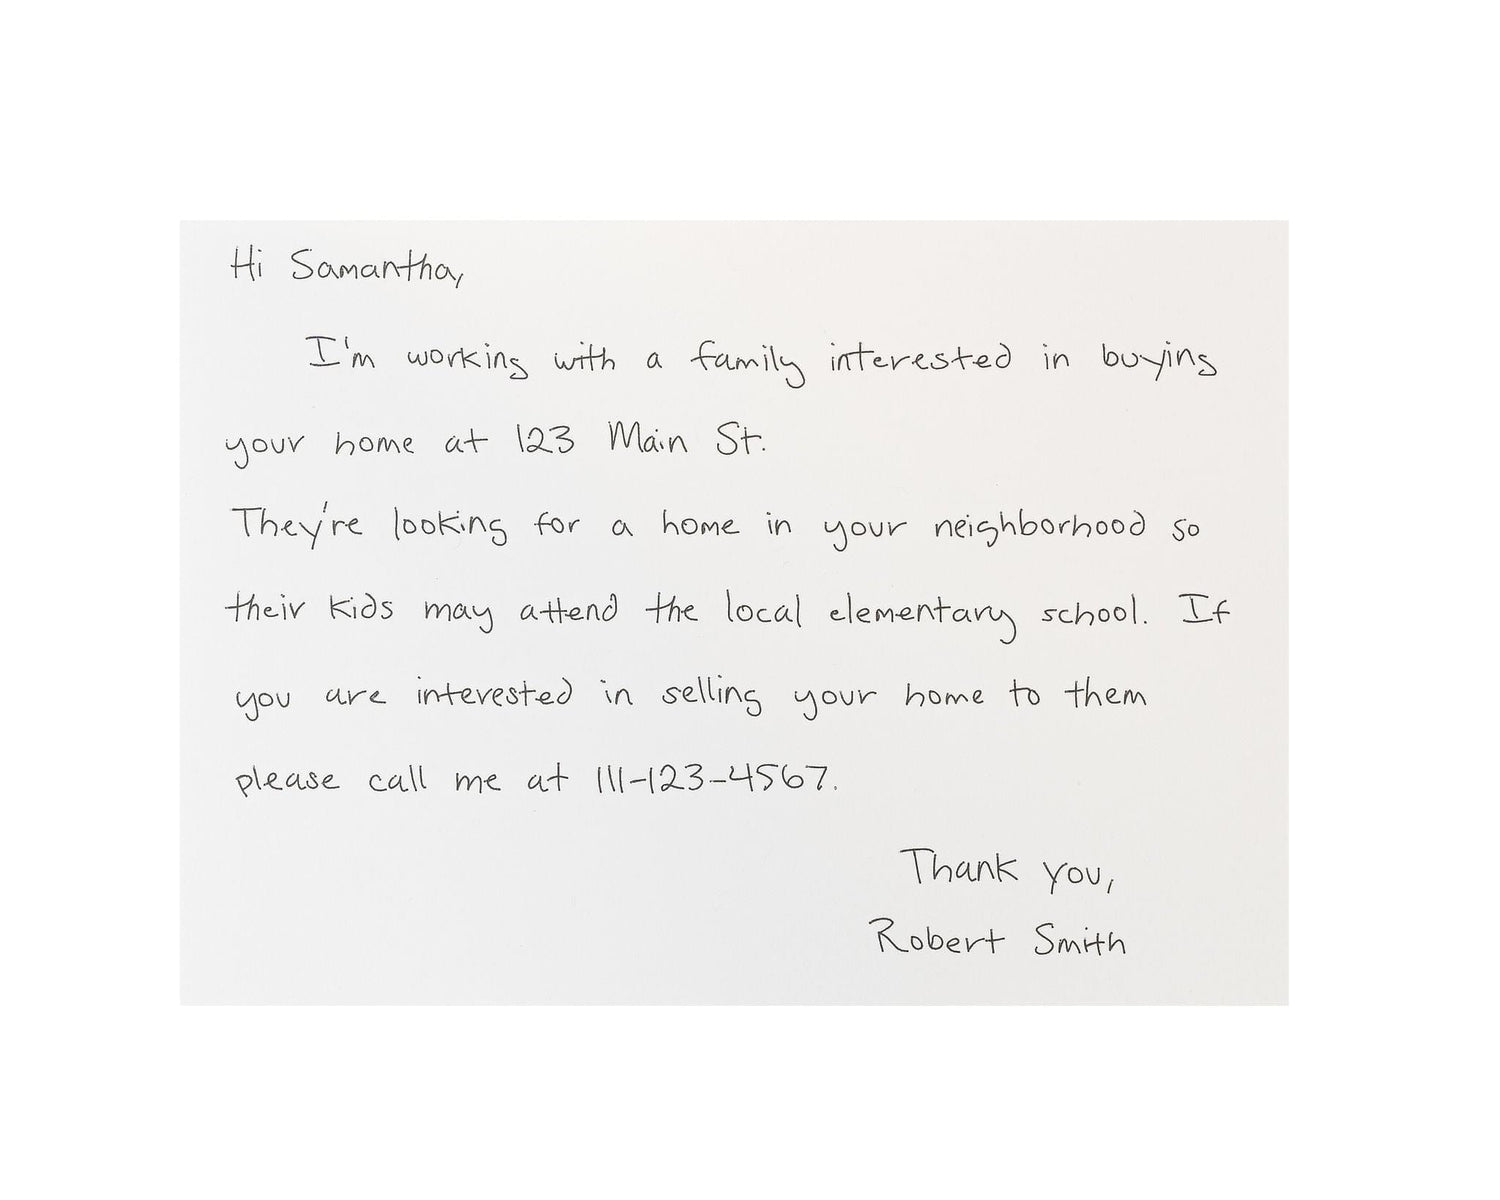 Hi Samantha,
I'm working with a family interested in buying
your home at 123 Main St.
They're looking for a home in your neighborhood so
their kids may attend the local elementary school. If
you are interested in selling your home to them
please call me at 111-123-4567.
Thank you,
Robert Smith